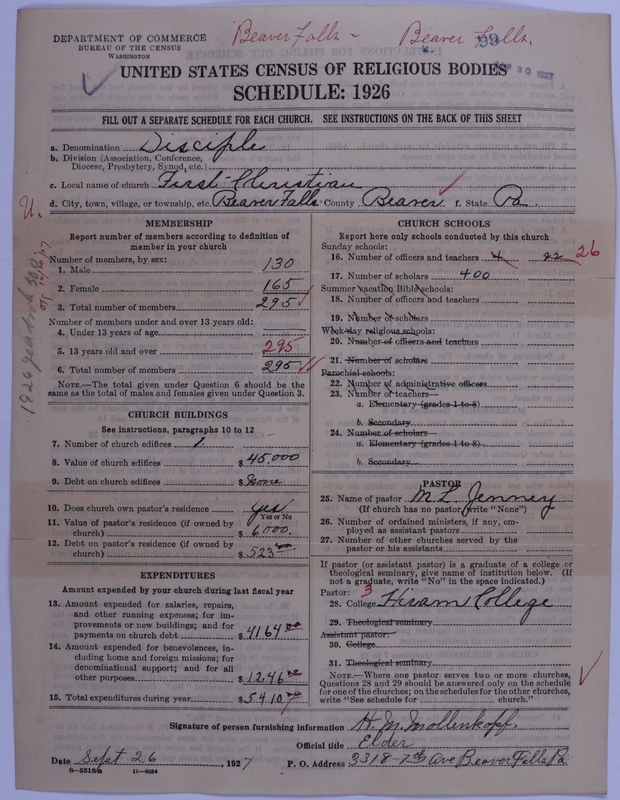 Beaver Falls - Beaver Falls.
DEPARTMENT OF COMMERCE
BUREAU OF THE CENSUS
WASHINGTON
UNITED STATES CENSUS OF RELIGIOUS BODIES
SCHEDULE: 1926
FILL OUT A SEPARATE SCHEDULE FOR EACH CHURCH. SEE INSTRUCTIONS ON THE BACK OF THIS SHEET
a. Denomination Disciple
b. Division (Association, Conference, Diocese, Presbytery, Synod, etc.)
c. Local name of church First Christian
d. City, town, village, or township, etc. Beaver Falls County Beaver f. State Pa
U.
1926 yearbook
MEMBERSHIP
Report number of members according to definition of
member in your church
Number of members, by sex:
1. Male 130
2. Female 165
3. Total number of members 295
Number of members under and over 13 years old:
4. Under 13 years of age
5. 13 years old and over 295
6. Total number of members 295
NOTE.—The total given under Question 6 should be the
same as the total of males and females given under Question 3.
CHURCH BUILDINGS
See instructions, paragraphs 10 to 12
7. Number of church edifices 1
8. Value of church edifices $ 45,000
9. Debt on church edifices $ None
10. Does church own pastor's residence yes
Yes or No
11. Value of pastor's residence (if owned by
church) $ 6000.
12. Debt on pastor's residence (if owned by
church) $ 523.00
EXPENDITURES
Amount expended by your church during last fiscal year
13. Amount expended for salaries, repairs,
and other running expenses; for im-
provements or new buildings; and for
payments on church debt $ 4164 00
14. Amount expended for benevolences, in-
cluding home and foreign missions; for
denominational support; and for all
other purposes $ 1246 00
15. Total expenditures during year $ 5410
CHURCH SCHOOLS
Report here only schools conducted by this church
Sunday schools:
16. Number of officers and teachers 4 22 26
17. Number of scholars 400
Summer vacation Bible schools:
18. Number of officers and teachers
19. Number of scholars
Week-day religious schools:
20. Number of officers and teachers
21. Number of scholars
Parochial schools:
22. Number of administrative officers
23. Number of teachers—
a. Elementary (grades 1 to 8)
b. Secondary
24. Number of scholars—
a. Elementary (grades 1 to 8)
b. Secondary
PASTOR
25. Name of pastor M. L. Jenney
(If church has no pastor write "None")
26. Number of ordained ministers, if any, em-
ployed as assistant pastors
27. Number of other churches served by the
pastor or his assistants
If pastor (or assistant pastor) is a graduate of a college or
theological seminary, give name of institution below. (If
not a graduate, write "No" in the space indicated.)
Pastor: 3
28. College Hiram College
29. Theological seminary
Assistant pastor:
30. College
31. Theological seminary
NOTE.—Where one pastor serves two or more churches,
Questions 28 and 29 should be answered only on the schedule
for one of the churches; on the schedules for the other churches,
write "See schedule for church."
Signature of person furnishing information H. M. Mollenkopf
Official title Elder
Date Sept 26, 1927 P. O. Address 3318-7th Ave Beaver Falls Pa
8-5518a 11-9054